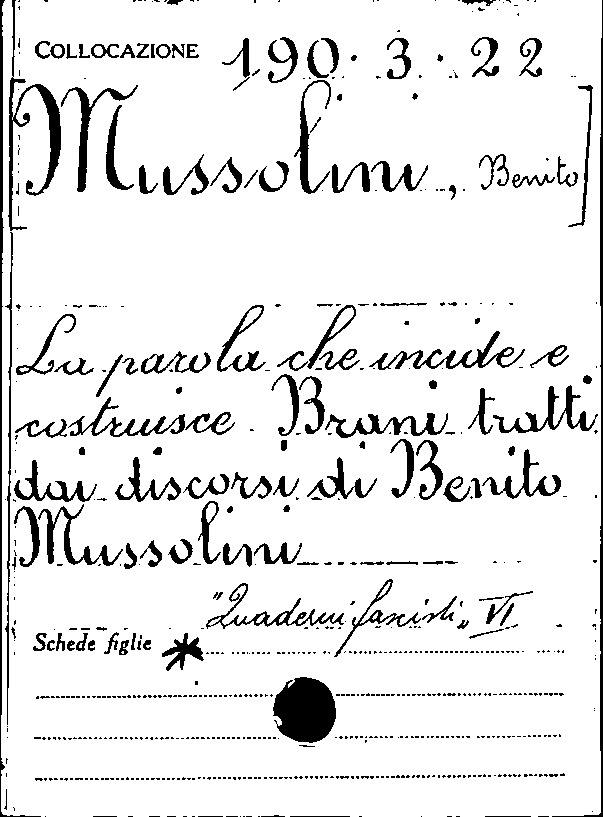 COLLOCAZIONE 190. 3. 22
[Mussolini, Benito]
La parola che incide e
costruisce. Brani tratti
dai discorsi di Benito
Mussolini
"Quaderni fascisti" VI
Schede figlie *